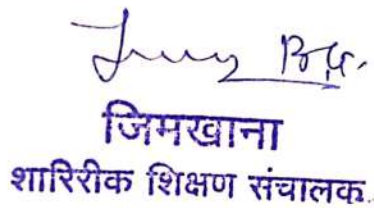 जिमखाना
शारिरीक शिक्षण संचालक.